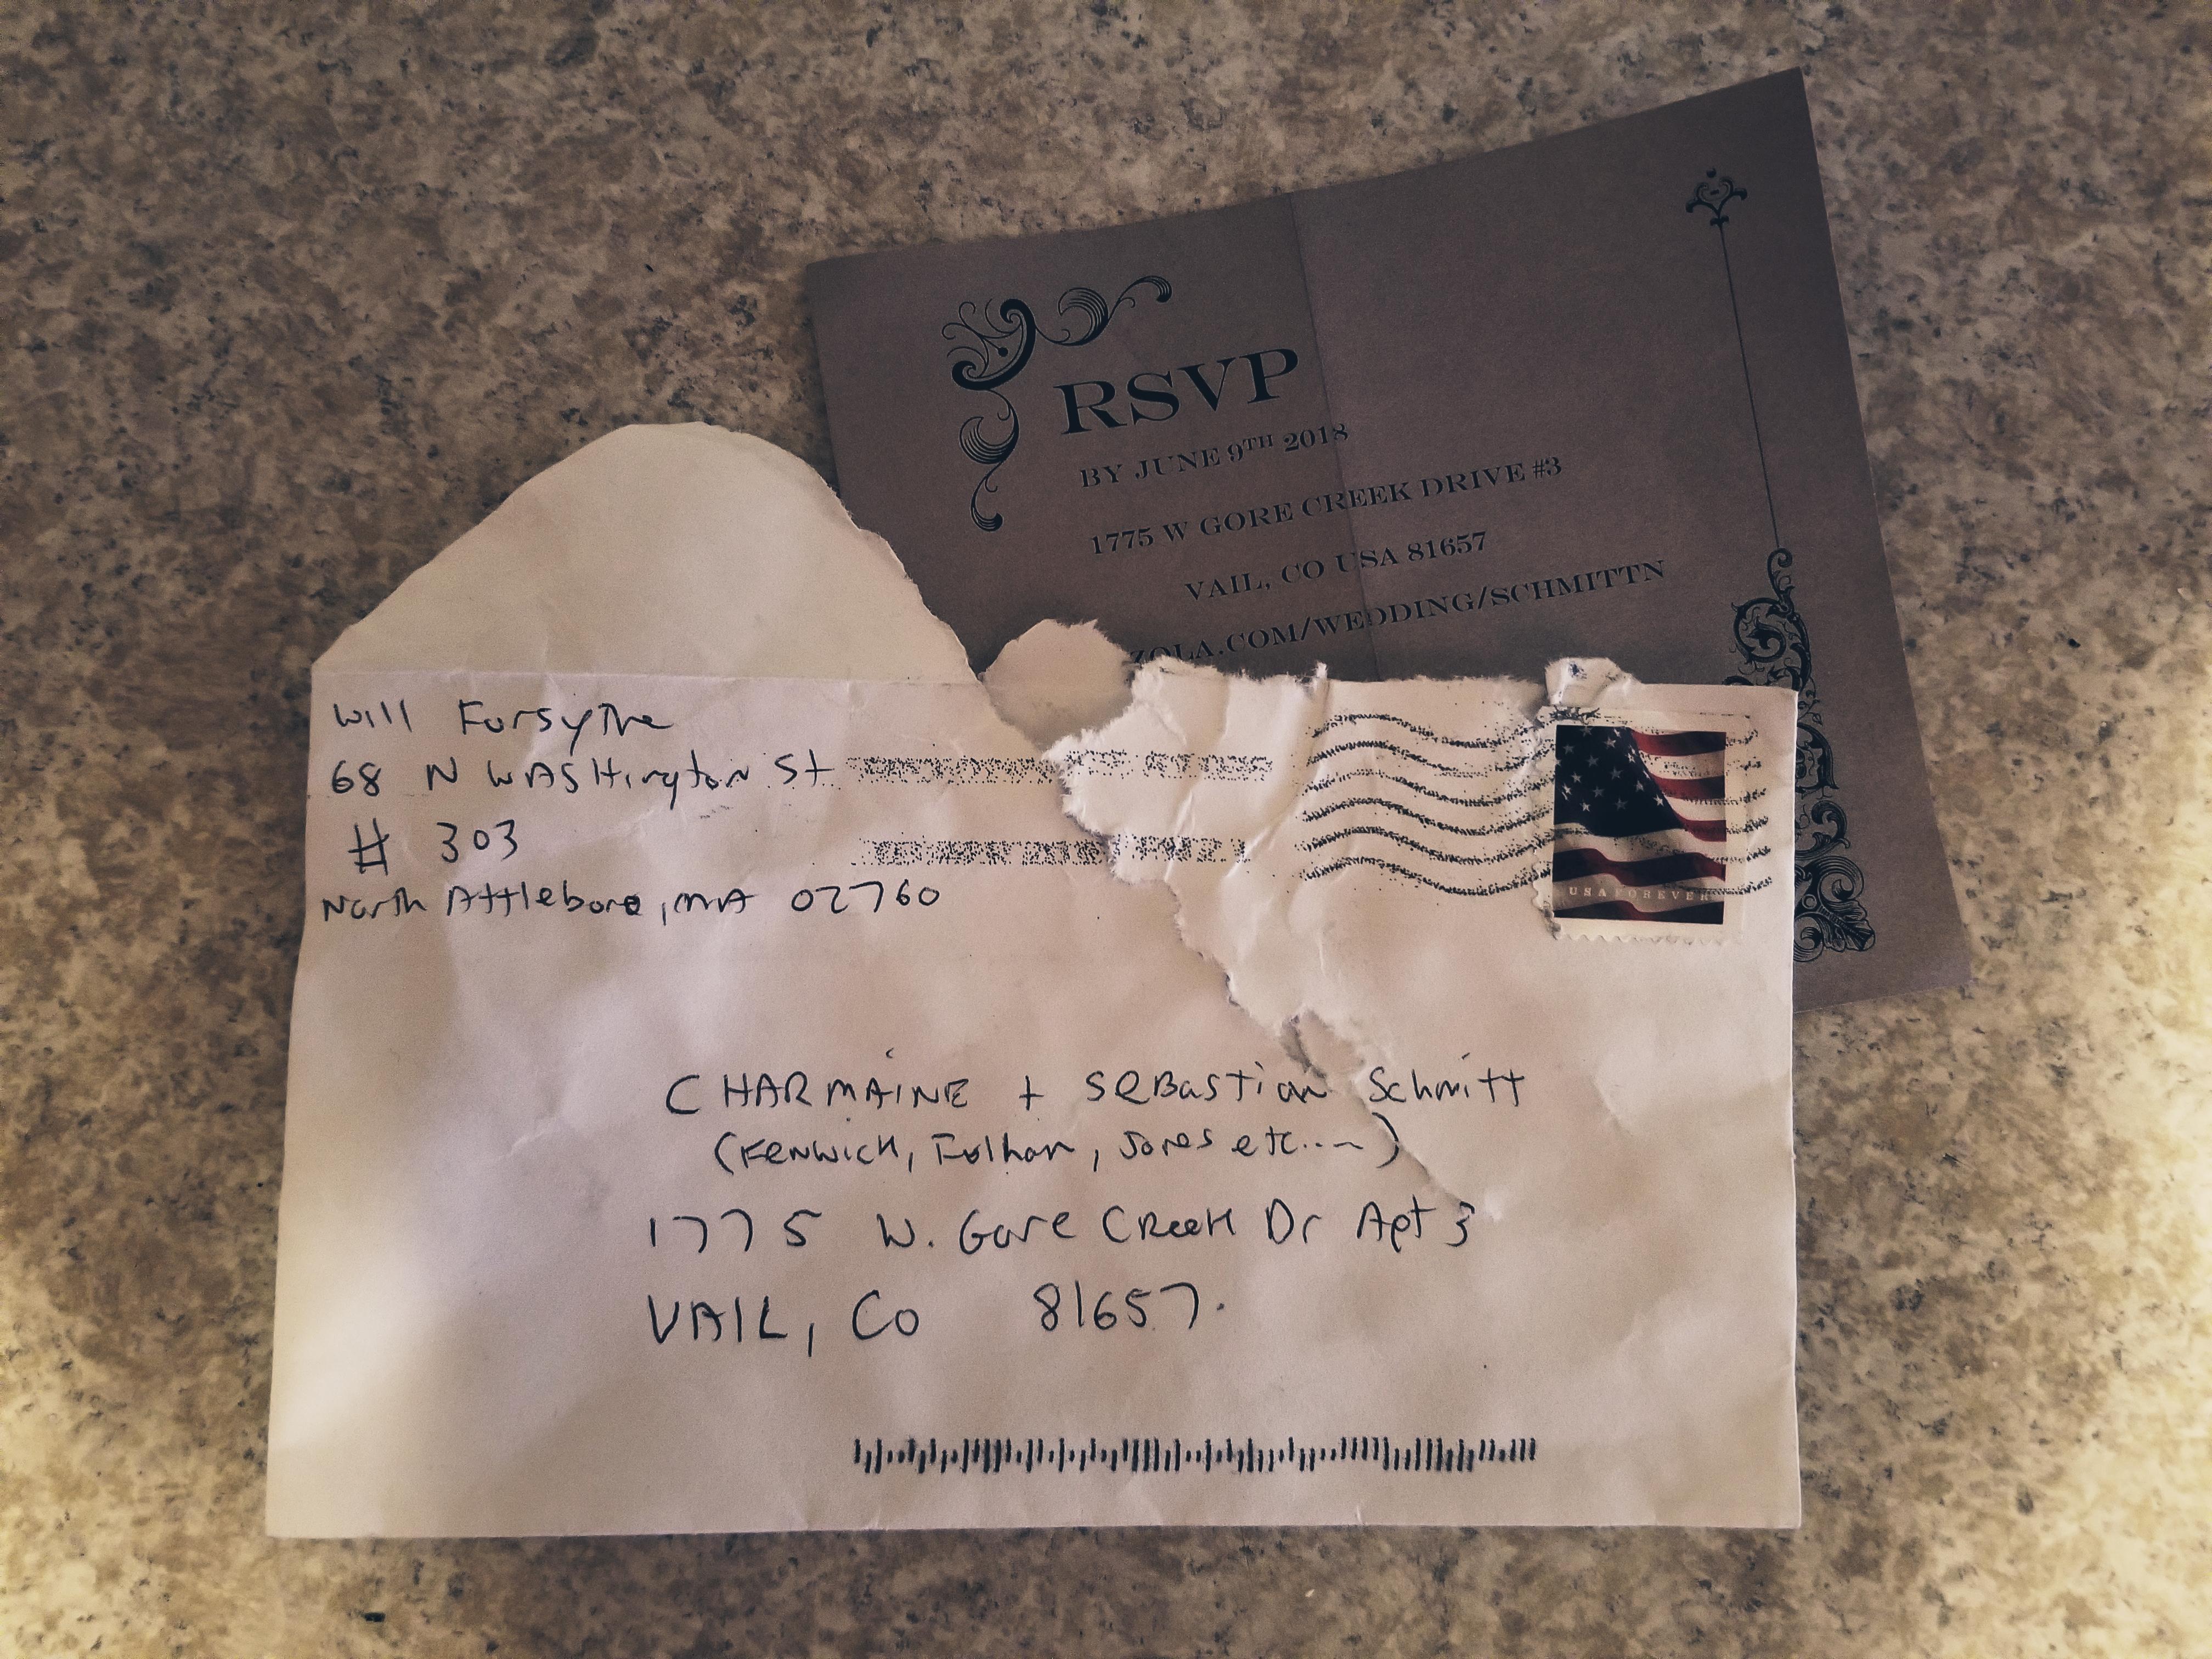 RSVP
BY JUNE 9TH 2018
1775 W GORE CREEK DRIVE #3
VAIL, CO USA 81657
ZOLA.COM/WEDDING/SCHMITTN
Will Forsythe
68 N WASHington St
# 303
North Attleboro, MA 02760
USA FOREVER
CHARMAINE + SeBastian Schmitt
(Fenwick, Fulham, Jones etc....)
1775 W. Gore Creek Dr Apt 3
VAIL, Co 81657.